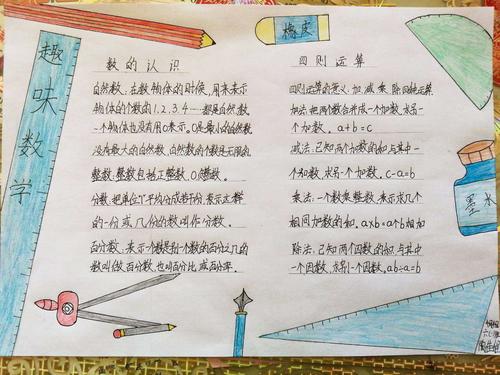 趣味数学
橡皮
墨水
数的认识
自然数,在数物体的时候,用来表示
物体的个数的1.2.3.4……都是自然数
一个物体也没有用0来示。0是最小的自然数
没有最大的自然数,自然数的个数是无限的
整数,整数包括正整数,0,负整数。
分数,把单位"1"平均分成若干份,表示这样
的一份或几份的数叫作分数。
百分数,表示一个数是另一个数的百分之几的
数叫做百分数,也叫百分比或百分率。
四则运算
四则运算的意义:加减乘除四种运算
加法:把两个数合并成一个加数,求另一
个加数。a+b=c
减法:已知两个加数的和与其中一
个加数,求另个加数。c-a=b
乘法:一个数乘整数,表示求几个
相同加数的和。axb=a个b相加
除法:已知两个因数的积与其中
一个因数,求另一个因数。ab÷a=b